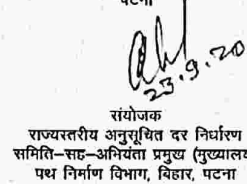 पटना
23.9.20
संयोजक
राज्यस्तरीय अनुसूचित दर निर्धारण
समिति–सह–अभियंता प्रमुख (मुख्यालय
पथ निर्माण विभाग, बिहार, पटना